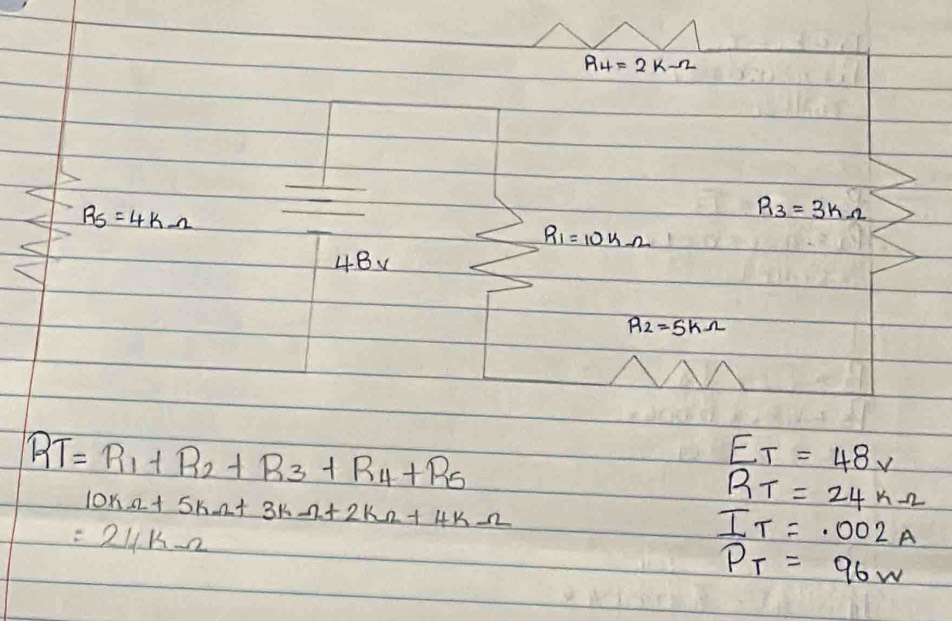 R4 = 2K Ω
R5 = 4K Ω
R3 = 3K Ω
R1 = 10K Ω
48v
R2 = 5K Ω
RT = R1 + R2 + R3 + R4 + R5
10KΩ + 5KΩ + 3KΩ + 2KΩ + 4KΩ
= 24KΩ
ET = 48v
RT = 24KΩ
IT = .002A
PT = 96w